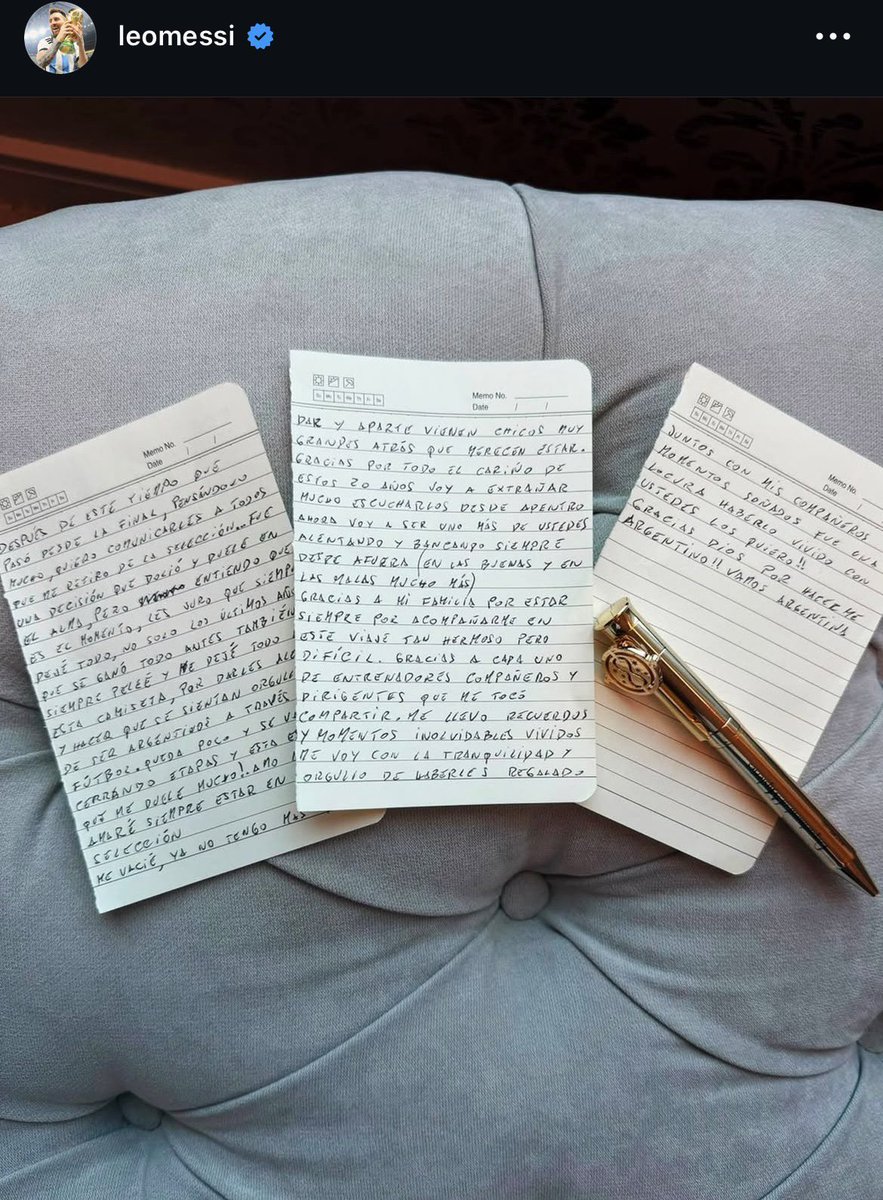 leomessi
Memo No.
Date / /
Su Mo Tu We Th Fr Sa
DESPUÉS DE ESTE TIEMPO QUE
PASÓ DESDE LA FINAL, PENSÁNDOLO
MUCHO, QUIERO COMUNICARLES A TODOS
QUE ME RETIRO DE LA SELECCIÓN.. FUE
UNA DECISIÓN QUE DOLIÓ Y DUELE EN
EL ALMA, PERO ENTIENDO QUE
ES EL MOMENTO, LES JURO QUE SIEMP
DEJÉ TODO, NO SOLO LOS ÚLTIMOS AÑOS
QUE SE GANÓ TODO ANTES TAMBIÉN
SIEMPRE PELEÉ Y ME DEJÉ TODO
ESTA CAMISETA, POR DARLES ALE
Y HACER QUE SE SIENTAN ORGULL
DE SER ARGENTINOS A TRAVÉS
FÚTBOL. QUEDA POCO Y SE VA
CERRANDO ETAPAS Y ESTA E
QUE ME DUELE MUCHO!. AMO
AMARÉ SIEMPRE ESTAR EN
SELECCIÓN
ME VACIÉ, YA NO TENGO MAS
Memo No.
Date / /
Su Mo Tu We Th Fr Sa
DAR Y APARTE VIENEN CHICOS MUY
GRANDES ATRÁS QUE MERECEN ESTAR.
GRACIAS POR TODO EL CARIÑO DE
ESTOS 20 AÑOS VOY A EXTRAÑAR
MUCHO ESCUCHARLOS DESDE ADENTRO
AHORA VOY A SER UNO MÁS DE USTEDES
ALENTANDO Y BANCANDO SIEMPRE
DESDE AFUERA (EN LAS BUENAS Y EN
LAS MALAS MUCHO MÁS)
GRACIAS A MI FAMILIA POR ESTAR
SIEMPRE POR ACOMPAÑARME EN
ESTE VIAJE TAN HERMOSO PERO
DIFÍCIL. GRACIAS A CADA UNO
DE ENTRENADORES COMPAÑEROS Y
DIRIGENTES QUE ME TOCÓ
COMPARTIR. ME LLEVO RECUERDOS
Y MOMENTOS INOLVIDABLES VIVIDOS
ME VOY CON LA TRANQUILIDAD Y
ORGULLO DE HABERLES REGALADO
Memo No.
Date /
Su Mo Tu We Th Fr Sa
JUNTOS CON MIS COMPAÑEROS
MOMENTOS SOÑADOS. FUE UNA
LOCURA HABERLO VIVIDO CON
USTEDES LOS QUIERO!!
GRACIAS DIOS POR HACERME
ARGENTINO!! VAMOS ARGENTINA